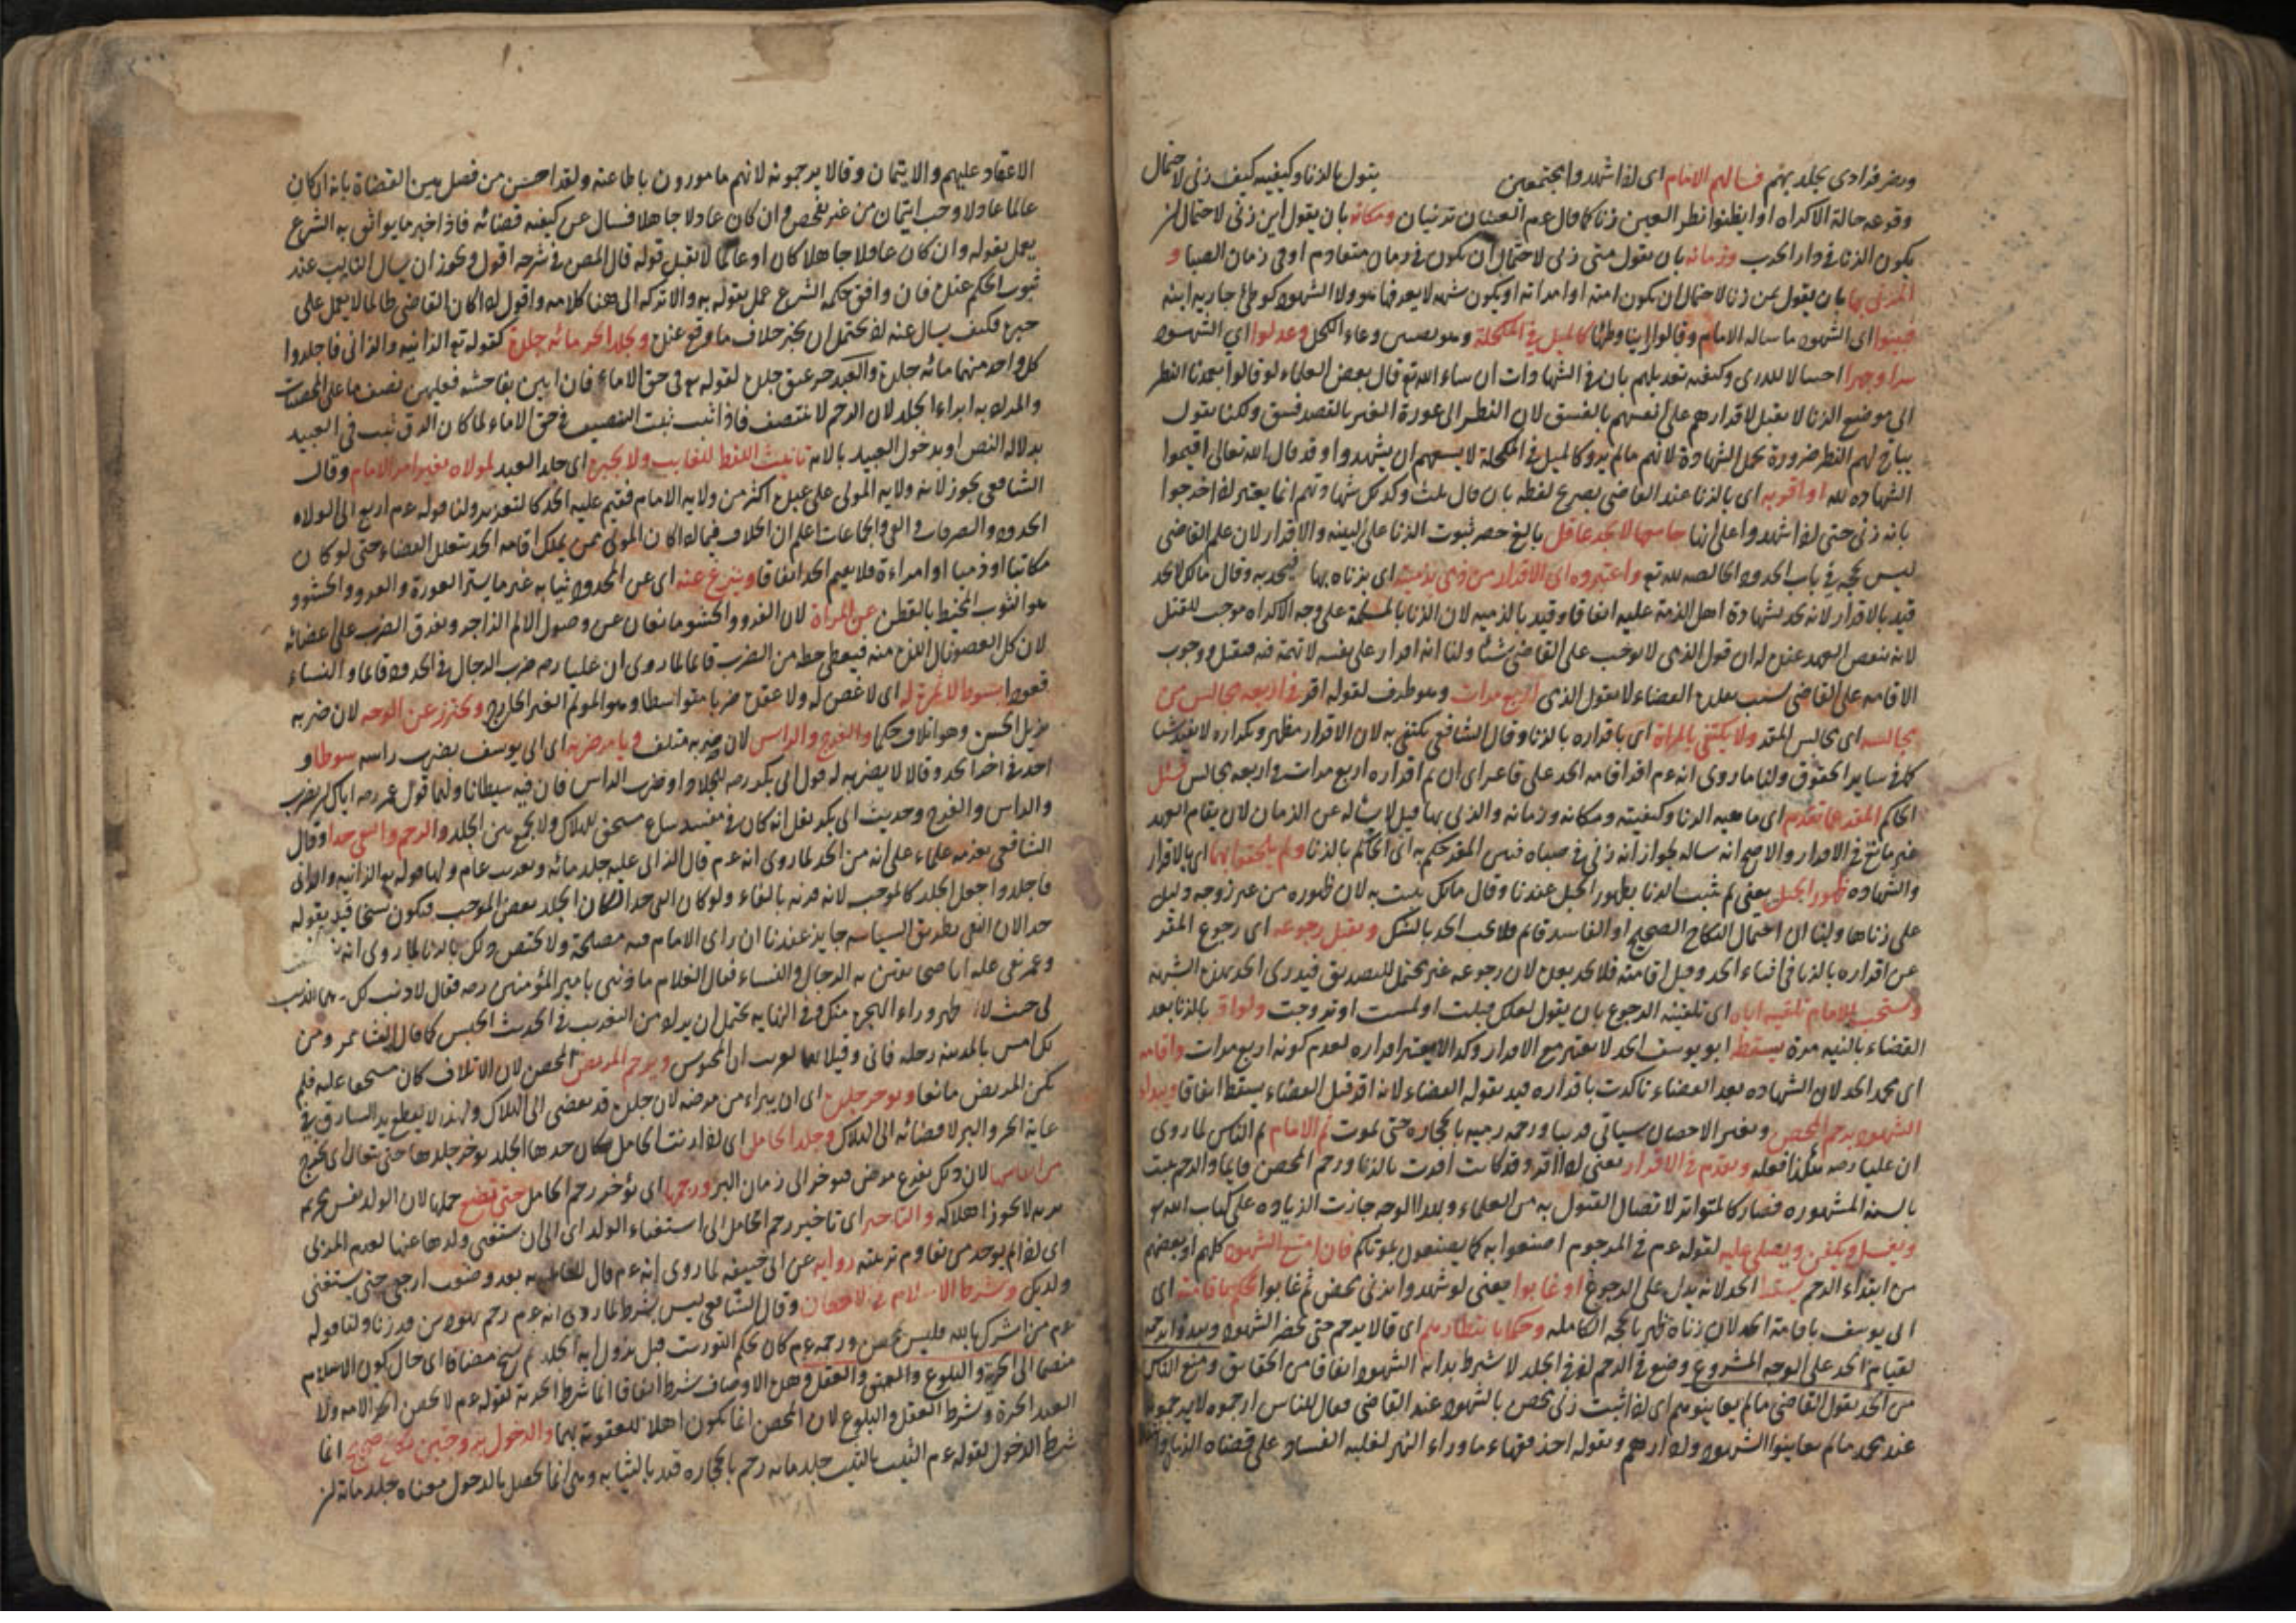 ومضر فرادى بجلد بهتم فسالهم الامام اى اذا شهدوا مجتمعين بتول ما الزنا وكيفيه كيف زنى لاحتمال
وقوعه حالة الاكراه او ايظنوا نظر العين زنا كما قال عم العينان تزنيان ومكانه بان يقول اين زنى لاحتمال ان
يكون الزنا فى دار الحرب وزمانه بان يقول متى زنى لاحتمال ان يكون فى زمان متقادم او فى زمان الصبا و
المزنى بها بان يقول بمن زنا لاحتمال ان يكون امته او امراته او يكون شبهه لا يعرفها هو ولا الشهود كوطئ جارية ابنه
فبينوا اى الشهود ما ساله الامام وقالوا راينا وطئها كالميل فى المكحلة وهو بضمين وعاء الكحل وعدلوا اى الشهود
سرا وجهرا احتيالا للدرى وكيفيه تعديلهم بان فى الشهادات ان شاء الله تع قال بعض العلماء لو قالوا تعمدنا النظر
الى موضع الزنا لا يقبل لاقرارهم على انفسهم بالفسق لان النظر الى عورة الغير بالقصد فسق ولكنا نقول
يباح لهم النظر ضرورة تحمل الشهادة لانهم مالم يروا كالميل فى المكحلة لا يسعهم ان يشهدوا وقد قال الله تعالى اقيموا
الشهاده لله او اقر به اى بالزنا عند القاضى بصريح لفظه بان قال ثلث وكذلك شهادتهم انما يعتبر اذا اخرجوا
بانه زنى حتى اذا شهدوا على انها جامعها لا يحد عاقل بالغ حصر ثبوت الزنا على البينه والاقرار لان علم القاضى
ليس بحجه فى باب الحدود الخالصه لله تع واعتبروه اى الاقرار من ذمى بذميه اى بزناه بها فيحد به وقال مالك لا يحد
قيد بالاقرار لانه يحد بشهادة اهل الذمة عليه اتفاقا وقيد بالذميه لان الزنا بالمسلمة على وجه الاكراه موجب للقتل
لانه ينقض العهد عنده له ان قول الذمى لا يوجب على القاضى شيئا ولنا انه اقرار على نفسه لا تهمة فيه فيقبل ووجوب
الاقامه على القاضى بسبب تقلده القضاء لا بقول الذمى اربع مرات وهو ظرف لقوله اقر فى اربعه مجالس من
مجالسه اى مجالس المقر ولا يكتفى بالمرة اى باقراره بالزنا وقال الشافعى يكتفى به لان الاقرار مظهر وتكراره لا يفيد شيا
كما فى ساير الحقوق ولنا ما روى انه عم اخر اقامه الحد على ماعز الى ان تم اقراره اربع مرات فى اربعه مجالس فسئل
الحاكم المقر عما تقدم اى ماهيه الزنا وكيفيته ومكانه وزمانه والمزنى بها قيل لا يساله عن الزمان لان تقادم العهد
غير مانع فى الاقرار والاصح انه يساله لجواز انه زنى فى صباه فبين المقر حكم به اى الحاكم بالزنا ولم يلحقوا بهما اى بالاقرار
والشهاده ظهور الحبل يعنى لم يثبت الزنا بظهور الحبل عندنا وقال مالك يثبت به لان ظهوره من غير زوجه دليل
على زناها ولنا ان احتمال النكاح الصحيح او الفاسد قائم فلا يجب الحد بالشك ويقبل رجوعه اى رجوع المقر
عن اقراره بالزنا فى اثناء الحد وقبل اقامته فلا يحد بعده لان رجوعه خبر يحتمل الصدق فيدرى الحد بهذه الشبهة
ويستحب للامام تلقينه اياه اى تلقينه الرجوع بان يقول لعلك قبلت او لمست او تزوجت ولو اقر بالزنا بعد
القضاء بالبينه مرة يسقط ابو يوسف الحد لا يعتبر مع الاقرار وكذا لا يعتبر اقراره لعدم كونه اربع مرات واقامه
اى محمد الحد لان الشهاده بعد القضاء تاكدت باقراره قيد بقوله القضاء لانه اقر قبل القضاء يسقط اتفاقا ويبداء
الشهود برجم المحصن وتفسير الاحصان سياتى قريبا ورجمه رميه بالحجاره حتى يموت ثم الامام ثم الناس لما روى
ان عليا رضه هكذا فعله ويقدم فى الاقرار يعنى اذا اقر وقد كانت اقرت بالزنا ورجم المحصن فايما والرجم ثبت
بالسنه المشهوره فصار كالمتواتر لاتصال القبول به من العلماء وبهذا الوجه جازت الزياده على كتاب الله هو
ويغسل ويكفن ويصلى عليه لقوله عم فى المرجوم اصنعوا به كما يصنعون بموتاكم فان امتنع الشهود كلهم او بعضهم
من ابتداء الرجم يسقط الحد لانه يدل على الرجوع او غابوا يعنى لو شهدوا بزنى محصن ثم غابوا حكم باقامته اى
ابى يوسف باقامة الحد لان زناه ظهر بالحجه الكامله وحكما بانتظارهم اى قالا يرجم حتى يحضر الشهود ويبدوا برجمه
لقيام الحد على الوجه المشروع وضع فى الرجم اذ فى الجلد لا شرط بداية الشهود اتفاقا من الحقايق ومنع الناس
من الحد بقول القاضى مالم يعاينوهم اى اذا ثبت زنى محصن بالشهود عند القاضى فقال للناس ارجموه لا يرجموه
عند محمد مالم يعاينوا الشهود ولا ارهم وبقوله اخذ فقهاء ما وراء النهر لغلبه الفساد على قضاه الزمان
الاعتماد عليهم والايتمان وقالا يرجمونه لانهم مامورون باطاعته ولقد احسن من فصل بين القضاة بانه ان كان
عالما عادلا وجب ايتمان من غير تفحص وان كان عادلا جاهلا فسال عن كيفيه قضائه فاذا اخبر ما يوافق به الشرع
يعمل بقوله وان كان عاملا جاهلا كان او عالما لا تقبل قوله قال المص فى شرحه اقول ويجوز ان يسال النايب عند
ثبوت الحكم عنده فان وافق حكمه الشرع عمل بقوله به والا تركه الى هنا كلامه واقول اذا كان القاضى ظالما لا يعمل على
خبره فكيف يسال عنه اذ يحتمل ان يخبر خلاف ما وقع عنده ويجلد الحر مائه جلدة كقوله تع الزانيه والزانى فاجلدوا
كل واحد منهما مائه جلدة والعبد خمسين جلده لقوله تع فى حق الاماء فان اتين بفاحشه فعليهن نصف ما على المحصنات
والمراد به ابداء الجلد لان الرجم لا يتنصف فاذا ثبت التنصيف فى حق الاماء لما كان الرق ثبت فى العبيد
بدلالة النص او بدخول العبيد بالاماء تانيث اللفظ للغايب ولا يجيزه اى جلد العبد لمولاه بغير امر الامام وقال
الشافعى يجوز لانه ولايه المولى على عبده اكثر من ولايه الامام فيقيم عليه الحد كالتعزير ولنا قوله عم اربع الى الولاة
الحدود والصدقات والفى والجماعات اعلم ان الخلاف فيما اذا كان المولى ممن يملك اقامه الحد بتقلد القضاء حتى لو كان
مكاتبا او ذميا او امراءة فلا يقيم الحد اتفاقا وينزع عنه اى عن المحدود ثيابه غير ما يستر العورة والفرو والحشو و
هو الثوب المخيط بالقطن عن المراة لان الفرو والحشو مانعان عن وصول الالم الزاجر ويفرق الضرب على اعضائه
لان كل العضو نال اللذة منه فيعطى حظه من الضرب قائما لما روى ان عليا رضه ضرب الرجال فى الحدود قائما والنساء
قعودا بسوط لا ثمرة له اى لا غصن له ولا عقدة ضربا متواسطا وهو المولم الغير الجارح ويحترز عن الوجه لان ضربه
يزيل الحسن وهو اتلاف حكما والفرج والراس لان ضربه متلف ويامر ضربه اى ابى يوسف بضرب راسه سوطا و
احد فى اخر الحد وقالا لا يضربه له قول ابى بكر رضه للجلاد اضرب الراس فان فيه شيطانا ولهما قول عمر رضه اياك ان تضرب
والراس والفرج وحديث ابى بكر نقل انه كان فى مفسد ساع مستحق للهلاك ولا يجمع بين الجلد والرجم والنفى حدا وقال
الشافعى يغربه عاما على انه من الحد لما روى انه عم قال الزانى عليه جلد مائة وتغريب عام ولنا قوله تع الزانيه والزانى
فاجلدوا جعل الجلد كالموجب لانه قرنه بالفاء ولو كان النفى حدا لكان الجلد بعض الموجب فيكون نسخا قيد بقوله
حدا لان النفى بطريق السياسه جايز عندنا ان راى الامام فيه مصلحة ولا يختص ذلك بالزنا لما روى انه
وعمر نفى غلاما صبيحا يفتتن به الرجال والنساء فقال الغلام ما ذنبى يا امير المؤمنين رضه فقال لا ذنب لك انما الذنب
لى حيث لا اطهر دار الهجرة منك وفى النهايه يحتمل ان يراد من التغريب فى الحديث الحبس كما قال الشاعر ومن
يك امسى بالمدينه رحله فانى وقيار بها لغريب اى لمحبوس ويرجم المريض المحصن لان الاتلاف كان مستحقا عليه فلم
يكن المريض مانعا ويوخر جلده اى ان يبراء من مرضه لان جلده قد يفضى الى الهلاك ولهذا لا يقطع يد السارق فى
غاية الحر والبرد لافضائه الى الهلاك وجلد الحامل اى اذا زنت الحامل وكان حدها الجلد يوخر جلدها حتى يتعالى اى تخرج
من النفاس لان ذلك نوع مرض فيوخر الى زمان البرء ورجمها اى يؤخر رجم الحامل حتى تضع حملها لان الولد نفس محترمه
لا يجوز اهلاكه والتاخير اى تاخير رجم الحامل الى استغناء الولد اى الى ان يستغنى ولدها عنها لعدم المربى
اى اذا لم يوجد من يقاوم تربيته روايه عن ابى حنيفه لما روى انه عم قال للغامديه بعد وضعت ارجعى حتى يستغنى
ولدك وشرط الاسلام فى الاحصان وقال الشافعى ليس بشرط لما روى انه عم رجم يهوديين قد زنا ولنا قوله
عم من اشرك بالله فليس بمحصن ورجمه عم كان بحكم التوريت قبل نزول اية الجلد ثم نسخ مضافا اى حال كون الاسلام
منضما الى الحرية والبلوغ والعقل وهذه الاوصاف شرط اتفاقا انما شرط الحرية لقوله عم لا يحصن الحر الامه ولا
العبد الحرة وشرط العقل والبلوغ لان المحصن انما يكون اهلا للعقوبة بهما والدخول بزوجين بنكاح صحيح انما
شرط الدخول لقوله عم الثيب بالثيب جلد مايه رجم بالحجاره قيد بالثيابه وهى انما يحصل بالدخول معناه جلد مائة ان